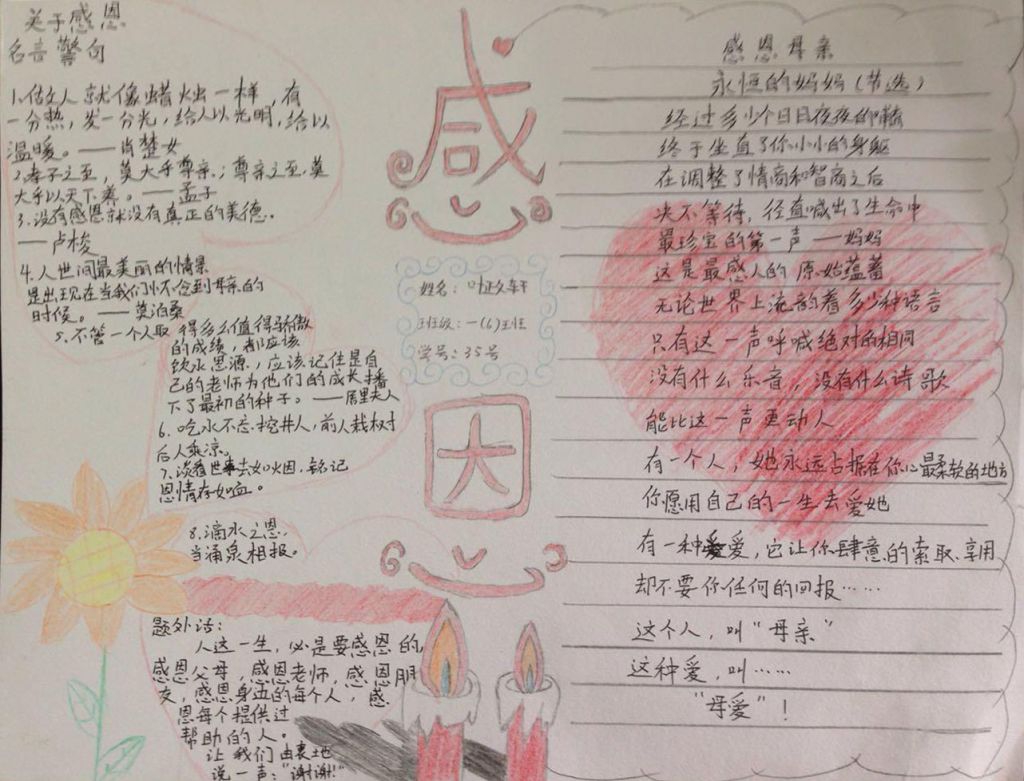 关于感恩
名言警句
1.做人就像蜡烛一样，有
一分热，发一分光，给人以光明，给以
温暖。——肖楚女
2.孝子之至，莫大乎尊亲；尊亲之至，莫
大乎以天下养。——孟子
3.没有感恩就没有真正的美德。
——卢梭
4.人世间最美丽的情景
是出现在当我们怀念到母亲的
时候。——莫泊桑
5.不管一个人取得多么值得骄傲
的成绩，都应该
饮水思源，应该记住是自
己的老师为他们的成长播
下了最初的种子。——居里夫人
6.吃水不忘挖井人，前人栽树
后人乘凉。
7.淡看世事去如烟，铭记
恩情存如血。
8.滴水之恩，
当涌泉相报。
题外话：
人这一生，必是要感恩的
感恩父母，感恩老师，感恩朋
友，感恩身边的每个人，感
恩每个提供过
帮助的人。
让我们由衷地
说一声："谢谢！"
感
姓名：叶
班级：一(6)班
学号：35号
恩
感恩母亲
永恒的妈妈（节选）
经过多少个日日夜夜的
终于坐直了你小小的身躯
在调整了情商和智商之后
决不等待，径直喊出了生命中
最珍宝的第一声——妈妈
这是最感人的原始蕴蓄
无论世界上流韵着多少种语言
只有这一声呼喊绝对的相同
没有什么乐音，没有什么诗歌
能比这一声更动人
有一个人，她永远占据在你心最柔软的地方
你愿用自己的一生去爱她
有一种爱，它让你肆意的索取、享用
却不要你任何的回报……
这个人，叫"母亲"
这种爱，叫……
"母爱"！